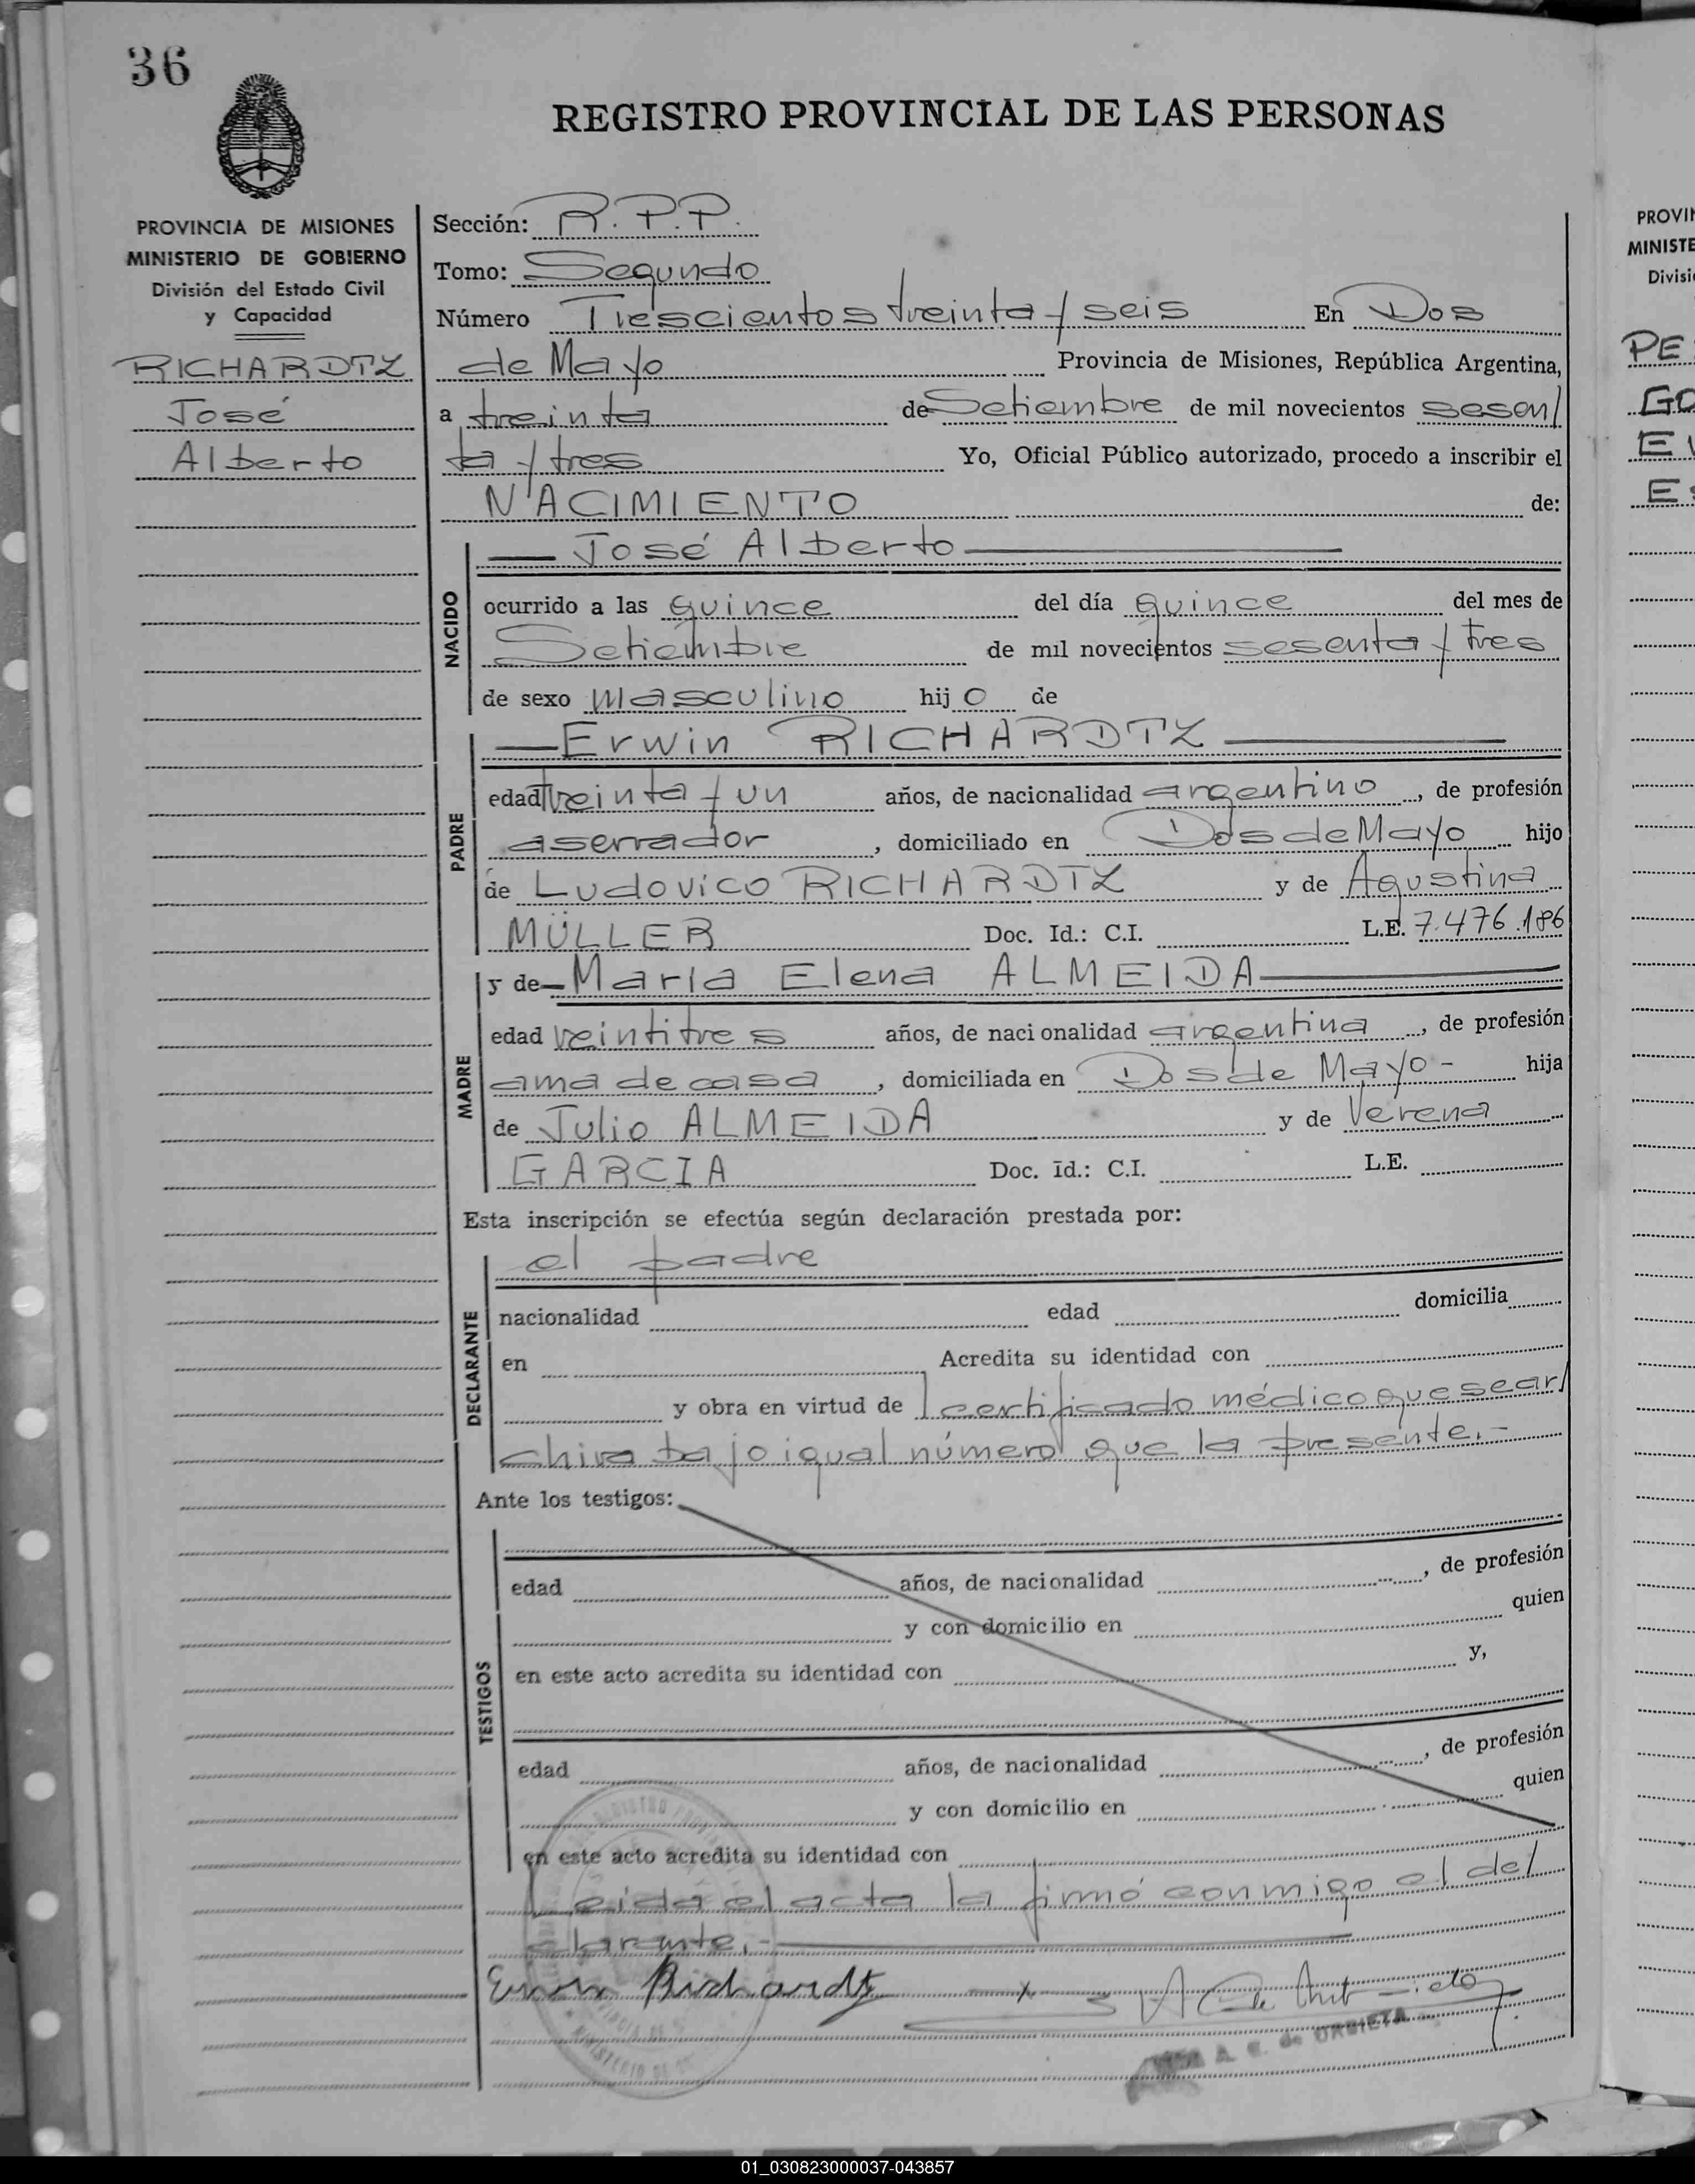 36
REGISTRO PROVINCIAL DE LAS PERSONAS
PROVINCIA DE MISIONES
MINISTERIO DE GOBIERNO
División del Estado Civil
y Capacidad
RICHARDTZ
José
Alberto
Sección: R.P.P.
Tomo: Segundo
Número Trescientos treinta y seis En Dos
de Mayo Provincia de Misiones, República Argentina,
a treinta de Setiembre de mil novecientos sesen/
ta y tres Yo, Oficial Público autorizado, procedo a inscribir el
NACIMIENTO de:
NACIDO
José Alberto
ocurrido a las quince del día quince del mes de
Setiembre de mil novecientos sesenta y tres
de sexo masculino hij o de
PADRE
Erwin RICHARDTZ
edad treinta y un años, de nacionalidad argentino, de profesión
aserrador, domiciliado en Dos de Mayo hijo
de Ludovico RICHARDTZ y de Agustina
MÜLLER Doc. Id.: C.I. L.E. 7.476.186
MADRE
y de María Elena ALMEIDA
edad veintitres años, de nacionalidad argentina, de profesión
ama de casa, domiciliada en Dos de Mayo - hija
de Julio ALMEIDA y de Verena
GARCIA Doc. Id.: C.I. L.E.
Esta inscripción se efectúa según declaración prestada por:
DECLARANTE
el padre
nacionalidad edad domicilia
en Acredita su identidad con
y obra en virtud de certificado médico que se ar/
chiva bajo igual número que la presente.-
Ante los testigos:
TESTIGOS
edad años, de nacionalidad, de profesión
y con domicilio en quien
en este acto acredita su identidad con y,
edad años, de nacionalidad, de profesión
y con domicilio en quien
en este acto acredita su identidad con
Leida el acta la firmó conmigo el de/
clarante.-
Erwin Richardtz
A. E. de URBIETA
PROVIN
MINISTE
Divisi
PE
GO
EV
ES
01_030823000037-043857